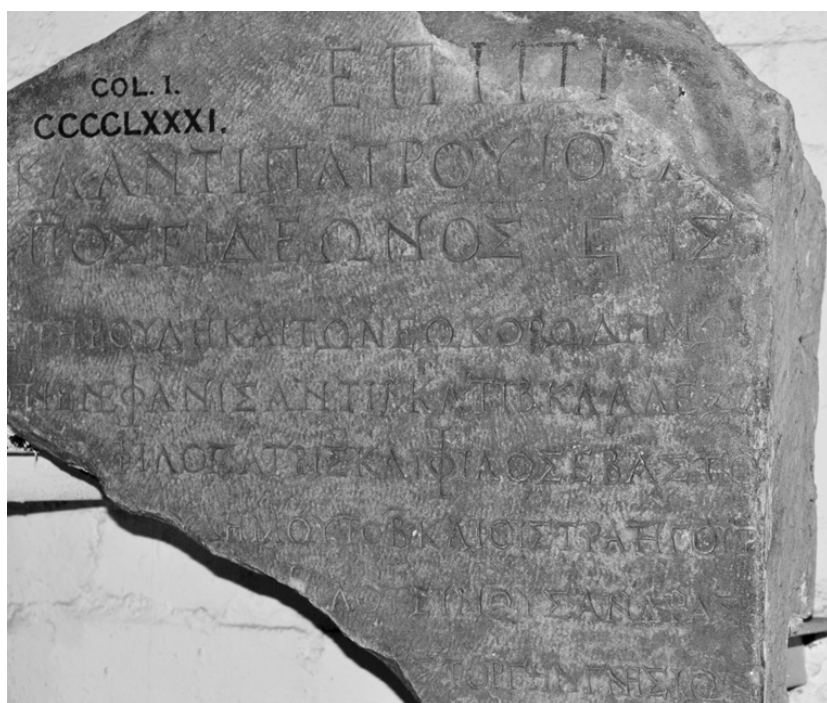 COL. I.
CCCCLXXXI.
ΕΠΙ Π
ΚΛ ΑΝΤΙΠΑΤΡΟΥ ΙΟ
ΠΟΣΕΙΔΕΩΝΟΣ Ϛ ΙΣ
ΒΟΥΛΗ ΚΑΙ ΤΩ ΝΕΩΚΟΡΩ ΔΗΜΩ
ΕΝΕΦΑΝΙΣΑΝ ΤΙΒ ΚΛ ΤΙΒ ΚΛ ΑΛΕΞΑ
ΦΙΛΟΠΑΤΡΙΣ ΚΑΙ ΦΙΛΟΣΕΒΑΣΤΟ
ΜΟΥ ΤΟ Β ΚΑΙ ΟΙ ΣΤΡΑΤΗΓΟΙ
ΟΥΣ ΑΝΔΡΑΣ
ΤΟΡΓΗΝ ΓΝΗΣΙΩΝ